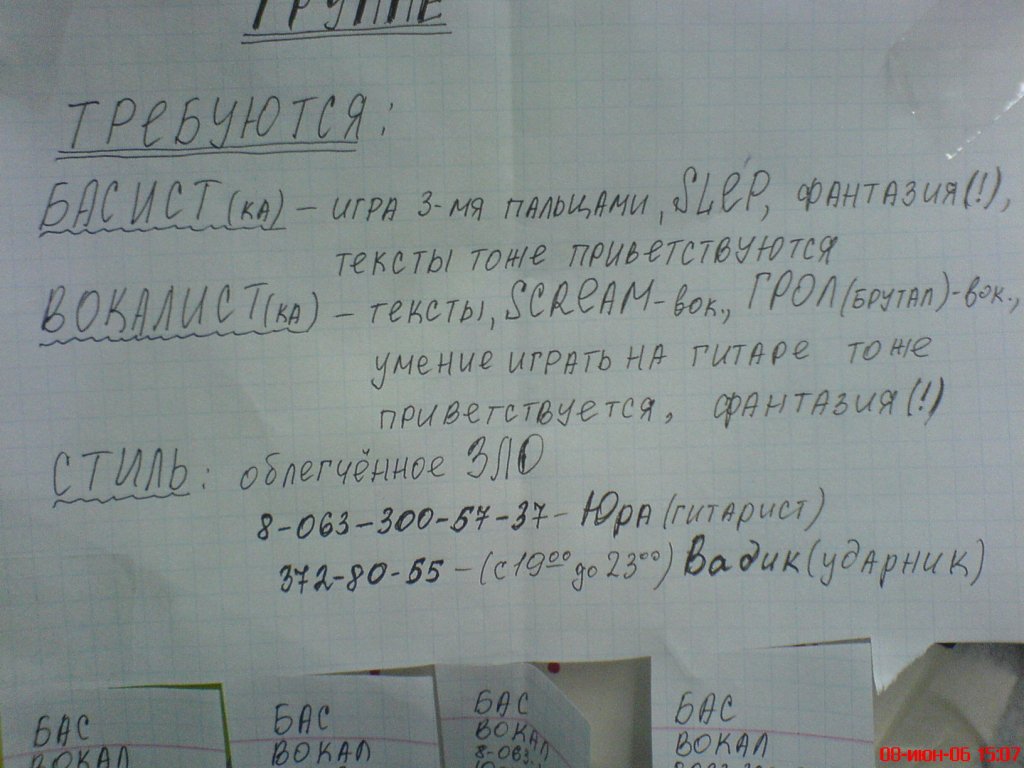 ГРУППЕ
ТРЕБУЮТСЯ:
БАСИСТ(КА) – ИГРА 3-МЯ ПАЛЬЦАМИ, SLÉP, ФАНТАЗИЯ(!),
ТЕКСТЫ ТОЖЕ ПРИВЕТСТВУЮТСЯ
ВОКАЛИСТ(КА) – ТЕКСТЫ, SCREAM-ВОК., ГРОЛ(БРУТАЛ)-ВОК.,
УМЕНИЕ ИГРАТЬ НА ГИТАРЕ ТОЖЕ
ПРИВЕТСТВУЕТСЯ, ФАНТАЗИЯ(!)
СТИЛЬ: облегчённое ЗЛО
8-063-300-57-37 – Юра (гитарист)
372-80-55 – (с 19⁰⁰ до 23⁰⁰) Вадик (ударник)
БАС
ВОКАЛ
БАС
ВОКАЛ
БАС
ВОКАЛ
8-063
БАС
ВОКАЛ
08-июн-06 15:07